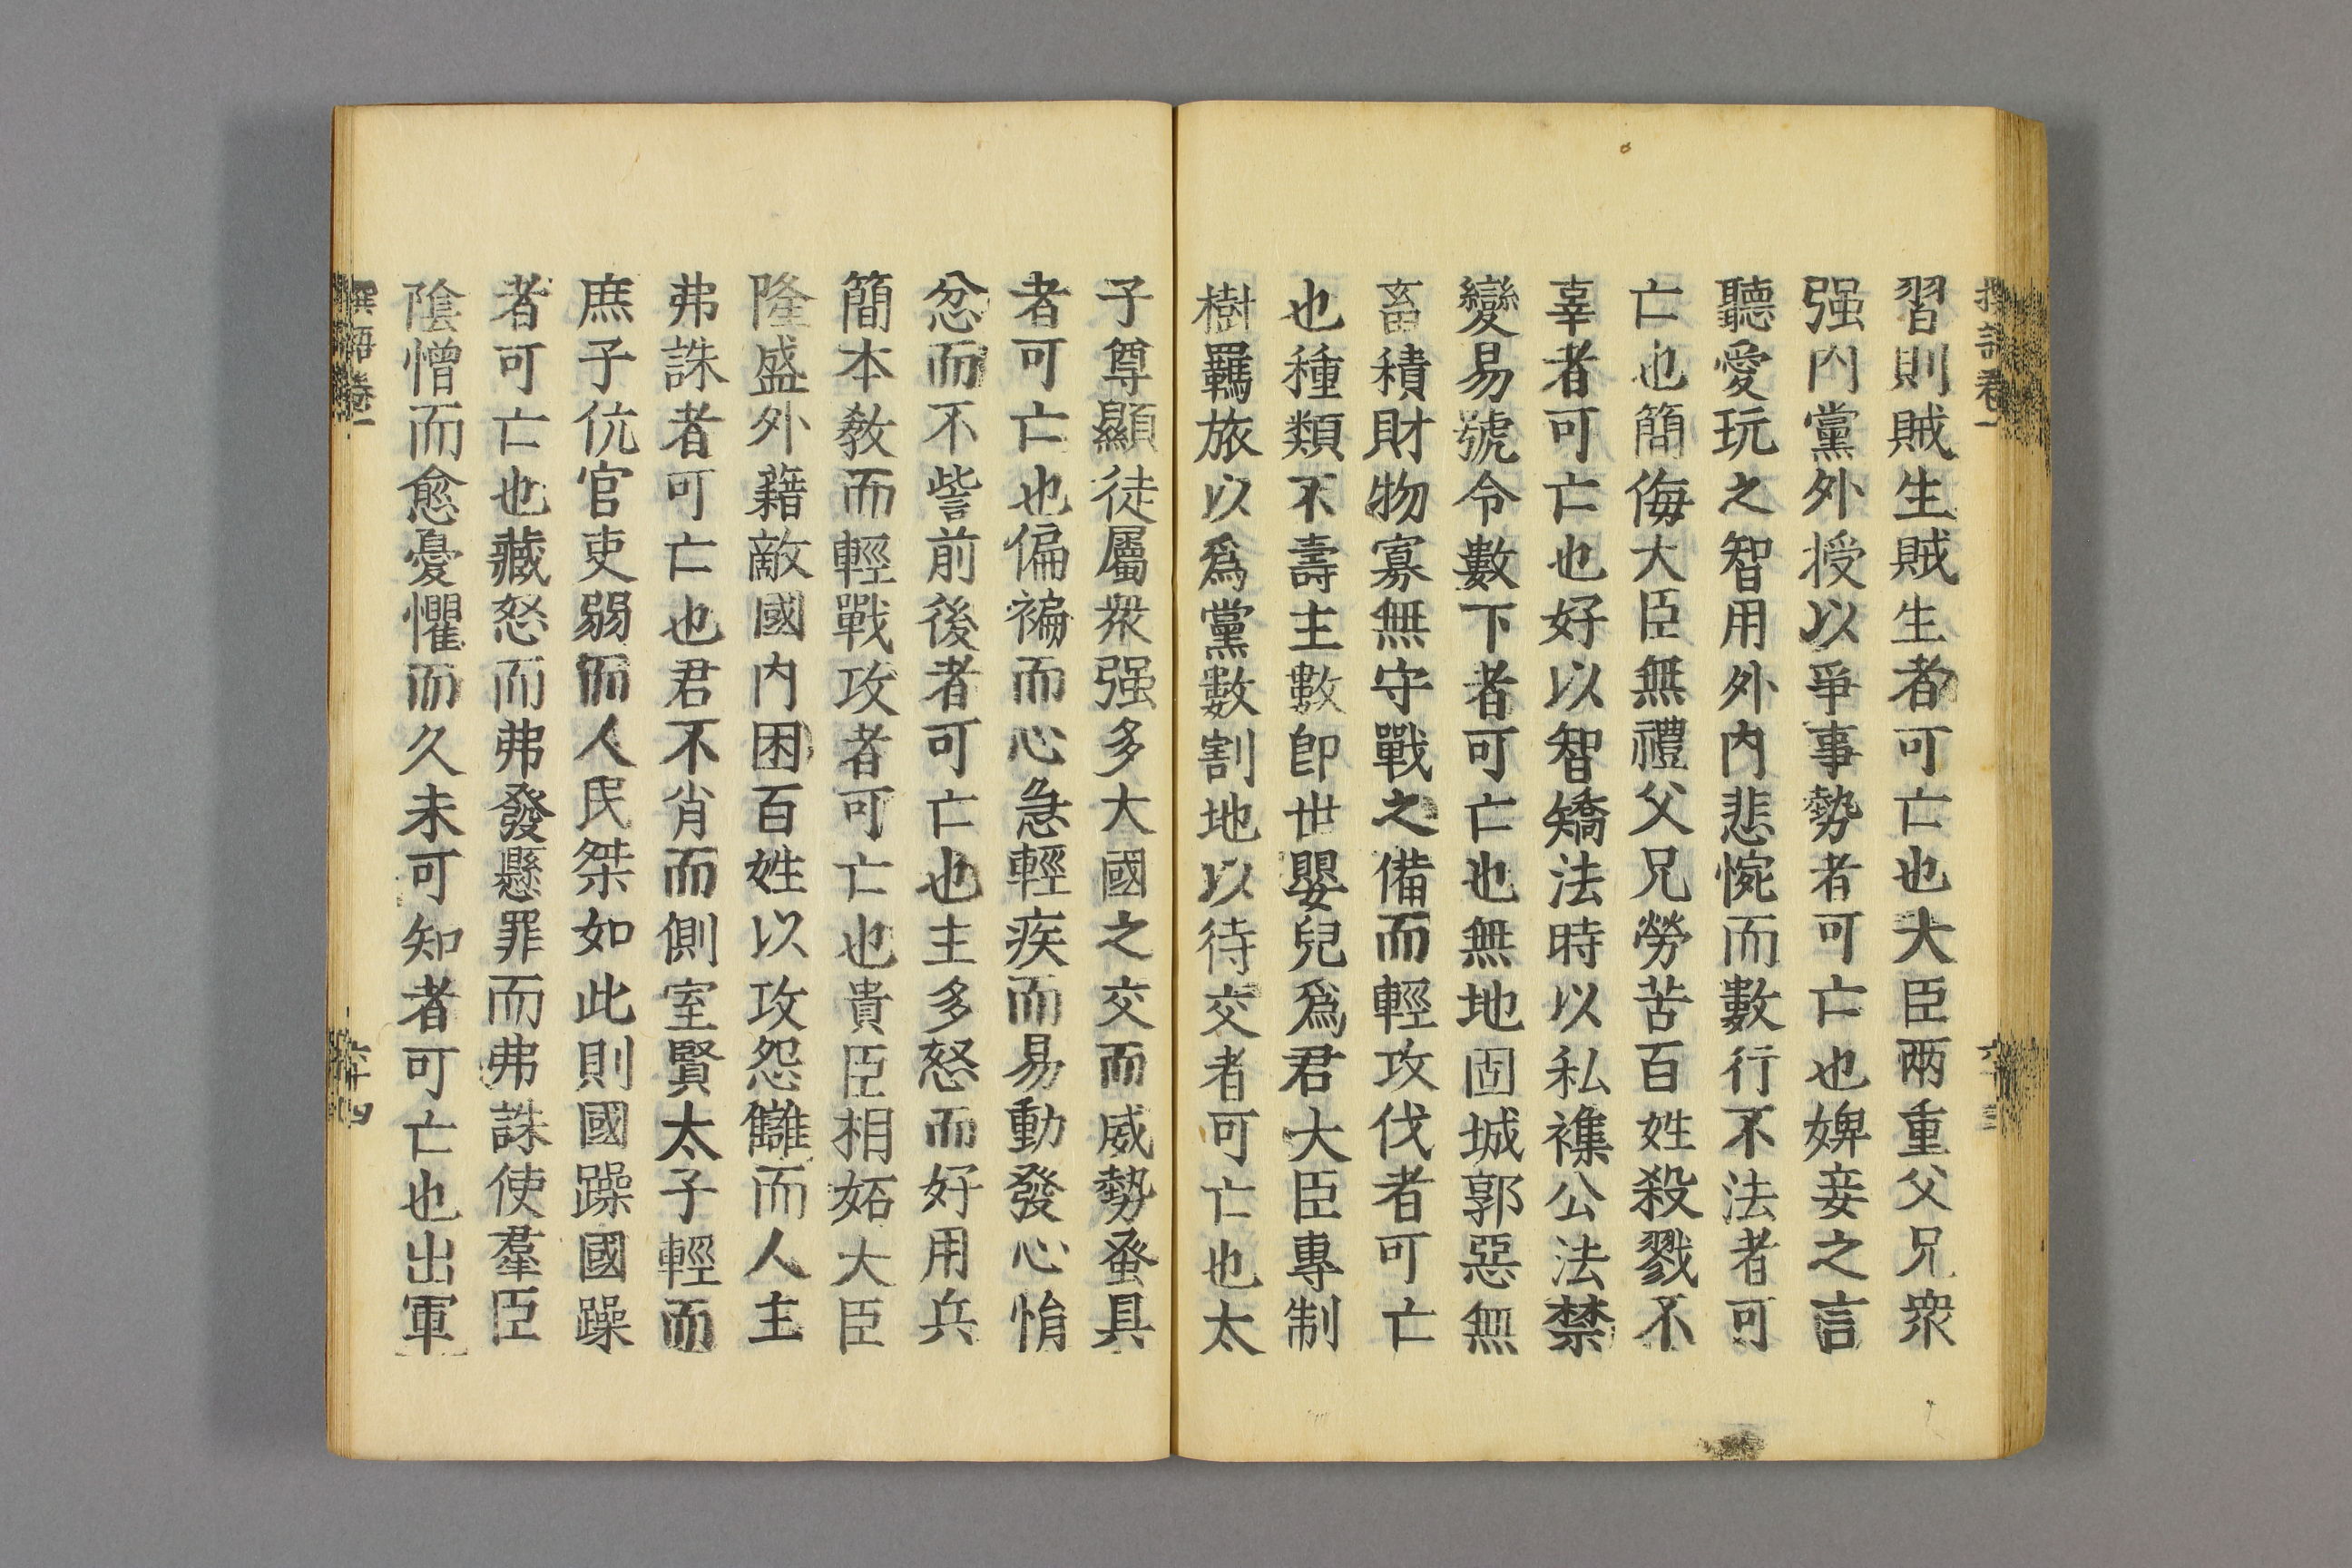 習則賊生賊生者可亡也大臣兩重父兄衆
强内黨外授以爭事勢者可亡也婢妾之言
聽愛玩之智用外内悲惋而數行不法者可
亡也簡侮大臣無禮父兄勞苦百姓殺戮不
辜者可亡也好以智矯法時以私襍公法禁
變易號令數下者可亡也無地固城郭惡無
畜積財物寡無守戰之備而輕攻伐者可亡
也種類不壽主數卽世嬰兒爲君大臣專制
樹羈旅以爲黨數割地以待交者可亡也太
子尊顯徒屬衆强多大國之交而威勢蚤具
者可亡也偏褊而心急輕疾而易動發心悁
忿而不訾前後者可亡也主多怒而好用兵
簡本敎而輕戰攻者可亡也貴臣相妬大臣
隆盛外藉敵國内困百姓以攻怨讎而人主
弗誅者可亡也君不肖而側室賢太子輕而
庶子伉官吏弱而人民桀如此則國躁國躁
者可亡也藏怒而弗發懸罪而弗誅使羣臣
陰憎而愈憂懼而久未可知者可亡也出軍